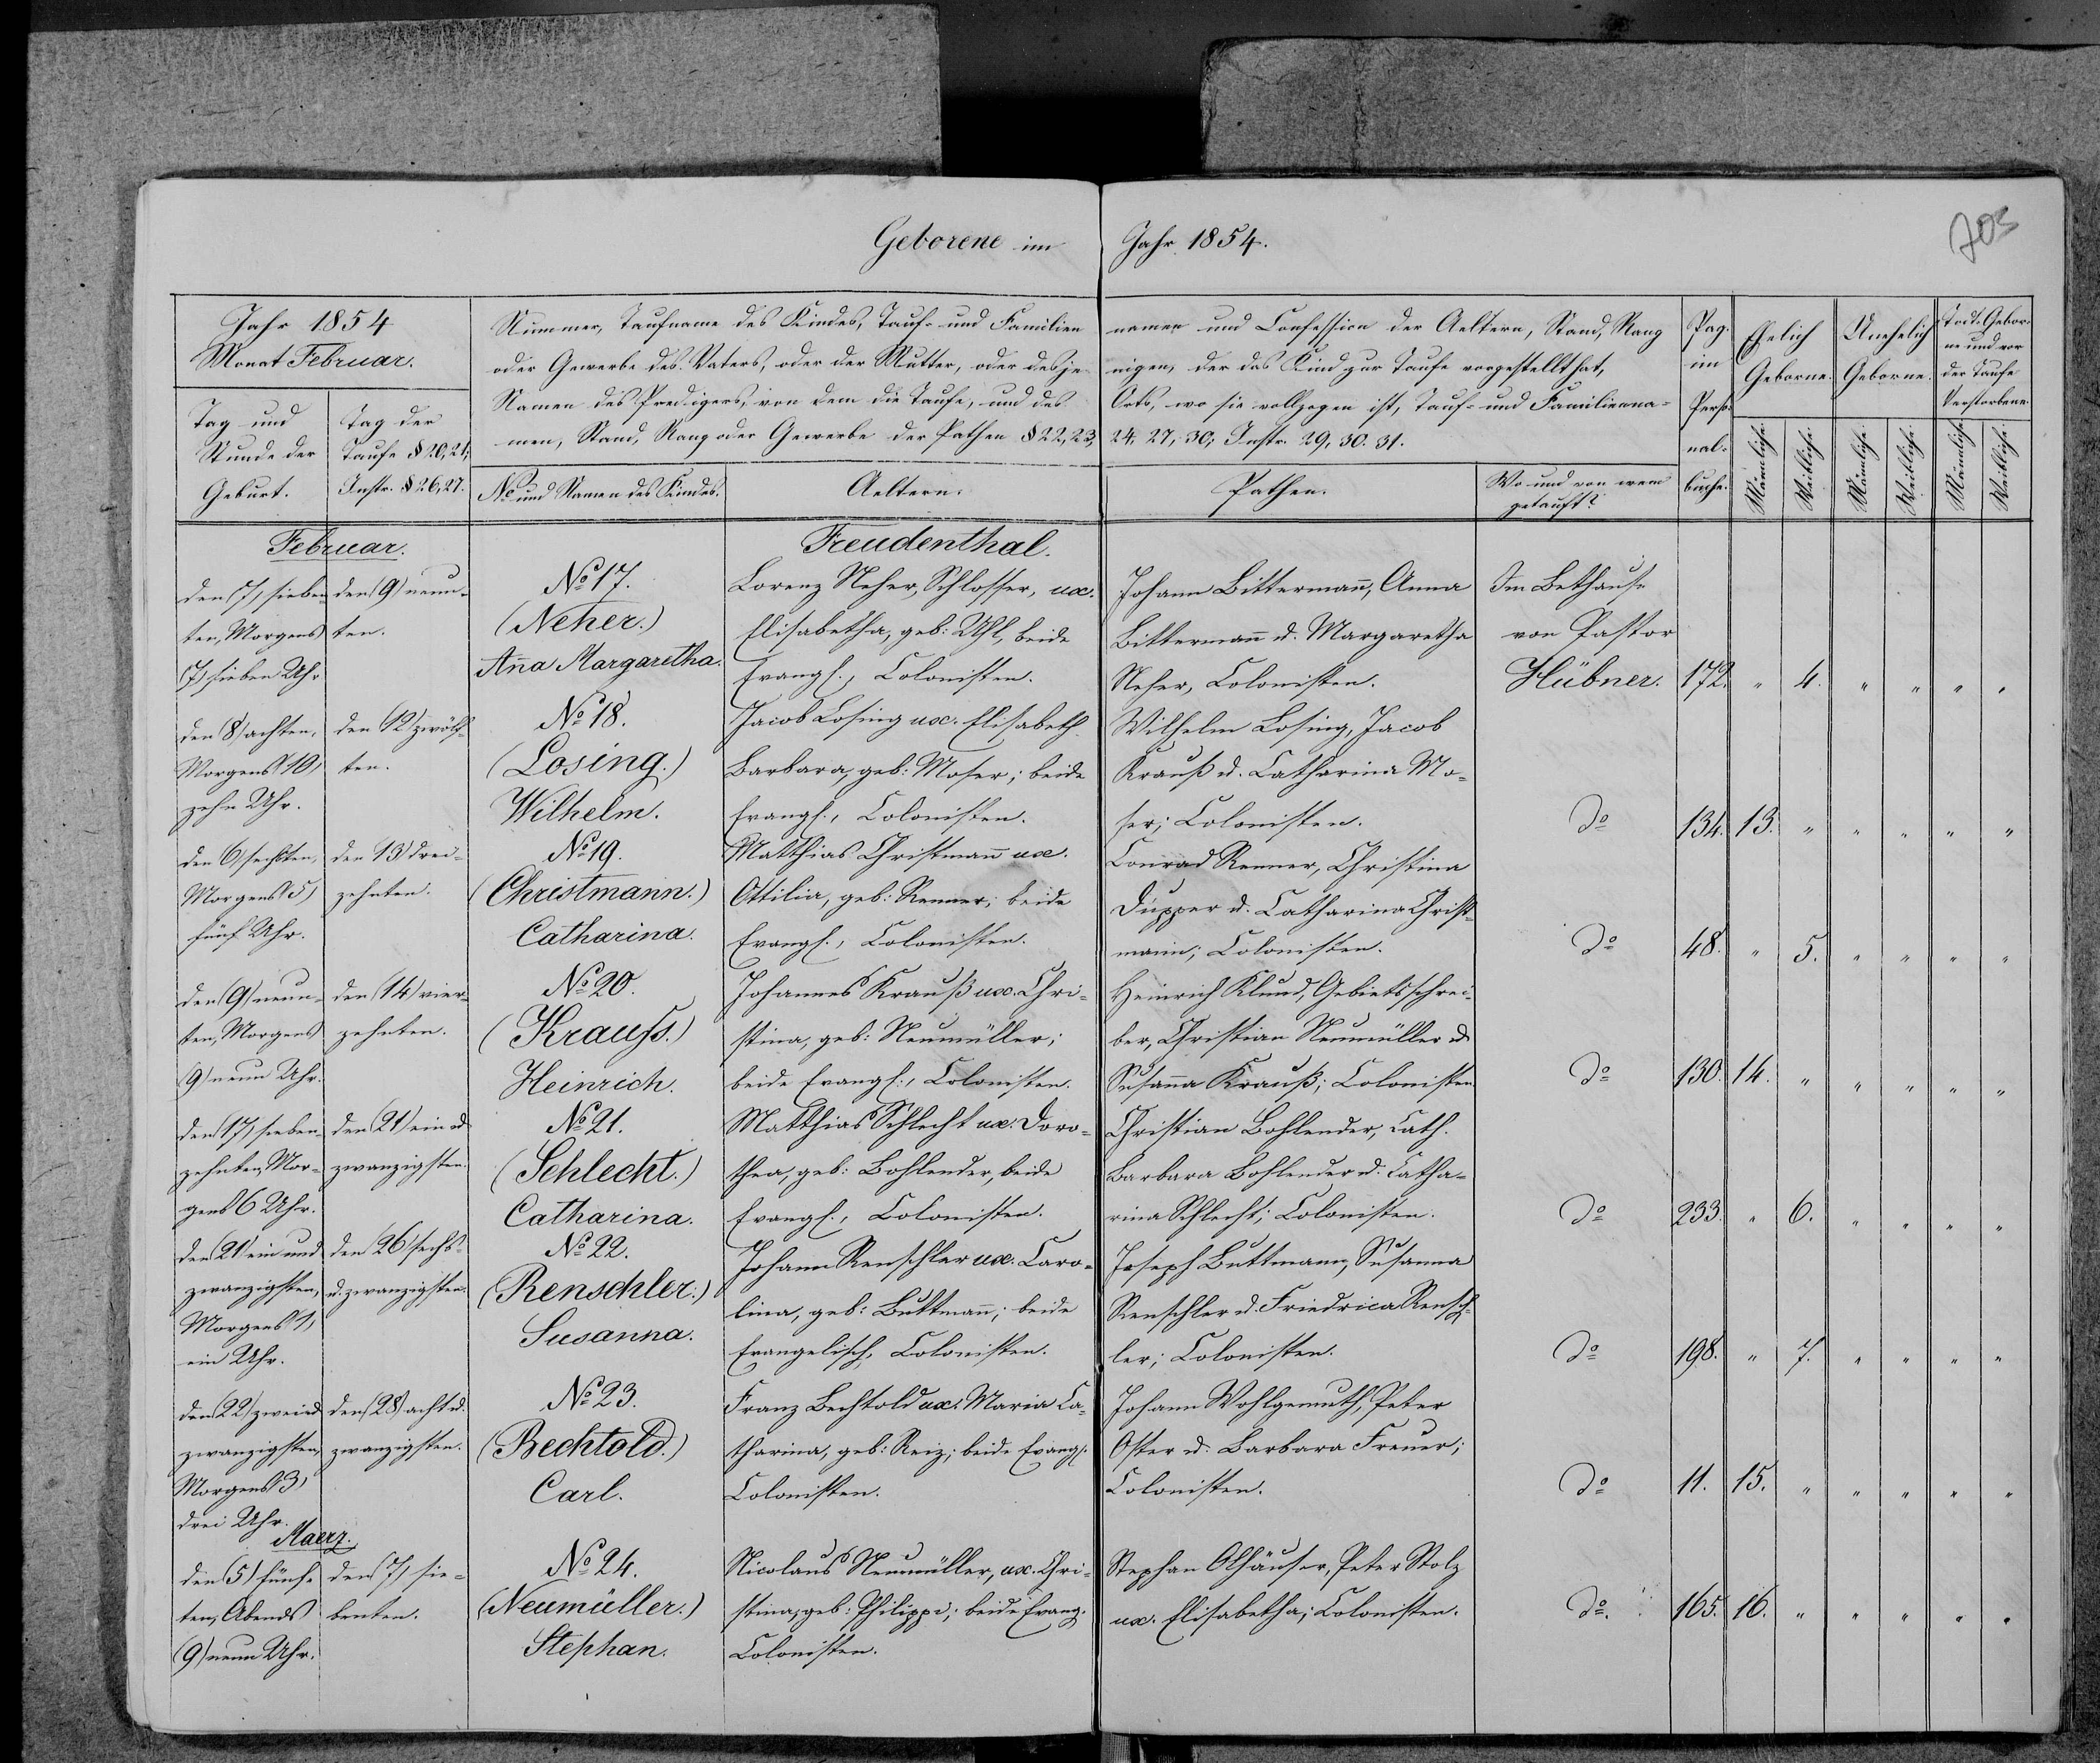 Geborene im Jahr 1854.
703
Jahr 1854
Monat Februar.
Tag und
Stunde der
Geburt.
Tag der
Taufe § 20, 21;
Instr. § 26, 27.
Nummer, Taufname des Kindes, Tauf- und Familien namen und Confession der Aeltern, Stand, Rang
oder Gewerbe des Vaters, oder der Mutter, oder desje nigen, der das Kind zur Taufe vorgestellt hat,
Namen des Predigers, von dem die Taufe, und des Orts, wo sie vollzogen ist, Tauf- und Familienna-
men, Stand, Rang oder Gewerbe der Pathen § 22, 23, 24, 27, 30; Instr. 29. 30. 31.
No und Namen des Kindes.
Aeltern.
Pathen.
Wo und von wem
getauft?
Pag.
im
Perso-
nal-
buche.
Ehelich
Geborne.
Unehelich
Geborne.
Todt-Gebor-
ne und vor
der Taufe
Verstorbene.
Männliche.
Weibliche.
Männliche.
Weibliche.
Männliche.
Weibliche.
Februar.
Freudenthal.
den (7) sieben-
ten, Morgens
(7) sieben Uhr
den (9) neun-
ten.
No 17.
(Neher.)
Anna Margaretha.
Lorenz Neher, Schlosser, ux.
Elisabetha, geb: Uhl, beide
Evangl., Colonisten.
Johann Bittermann, Anna
Bittermann u. Margaretha
Neher, Colonisten.
Im Bethause
von Pastor
Hübner.
172. " 4. " " " "
den (8) achten,
Morgens (10)
zehn Uhr.
den (12) zwölf-
ten.
No 18.
(Losing.)
Wilhelm.
Jacob Losing ux. Elisabeth
Barbara, geb: Moser; beide
Evangl., Colonisten.
Wilhelm Losing, Jacob
Krauß u. Catharina Mo-
ser; Colonisten.
do
134. 13. " " " " "
den (6) sechsten,
Morgens (5)
fünf Uhr.
den (13) drei-
zehnten.
No 19.
(Christmann.)
Catharina.
Matthias Christmann ux.
Ottilia, geb: Renner; beide
Evangl., Colonisten.
Conrad Renner, Christina
Düpper u. Catharina Christ-
mann; Colonisten.
do
48. " 5. " " " "
den (9) neun-
ten, Morgens
(9) neun Uhr.
den (14) vier-
zehnten.
No 20.
(Krauss.)
Heinrich.
Johannes Krauß ux. Chri-
stina, geb: Neumüller;
beide Evangl., Colonisten.
Heinrich Klund, Gebietsschrei-
ber, Christian Neumüller u.
Susanna Krauß; Colonisten
do
130. 14. " " " " "
den (17) sieben-
zehnten, Mor-
gens 6 Uhr.
den (21) ein u.
zwanzigsten.
No 21.
(Schlecht.)
Catharina.
Matthias Schlecht ux: Doro-
thea, geb: Bohlender, beide
Evangl., Colonisten.
Christian Bohlender, Cath.
Barbara Bohlender u. Catha-
rina Schlecht; Colonisten.
do
233. " 6. " " " "
den (21) ein und
zwanzigsten,
Morgens (1)
ein Uhr.
den (26) sechs-
u. zwanzigsten.
No 22.
(Renschler.)
Susanna.
Johann Renschler ux: Caro-
lina, geb: Buttmann; beide
Evangelisch, Colonisten.
Joseph Buttmann, Susanna
Renschler u. Friedrica Rensch-
ler; Colonisten.
do
198. " 7. " " " "
den (22) zwei u.
zwanzigsten,
Morgens (3)
drei Uhr.
den (28) acht u.
zwanzigsten.
No 23.
(Bechtold.)
Carl.
Franz Bechtold ux: Maria Ca-
tharina, geb: Reiz; beide Evangl.
Colonisten.
Johann Wohlgemuth, Peter
Oster u. Barbara Freuer;
Colonisten.
do
11. 15. " " " " "
Maerz.
den (5) fünf-
ten, Abends
(9) neun Uhr.
den (7) sie-
benten.
No 24.
(Neumüller.)
Stephan.
Nicolaus Neumüller, ux. Chri-
stina, geb: Philippi; beide Evang.
Colonisten.
Stephan Olhäuser, Peter Stolz
ux. Elisabetha; Colonisten.
do.
165. 16. " " " " "